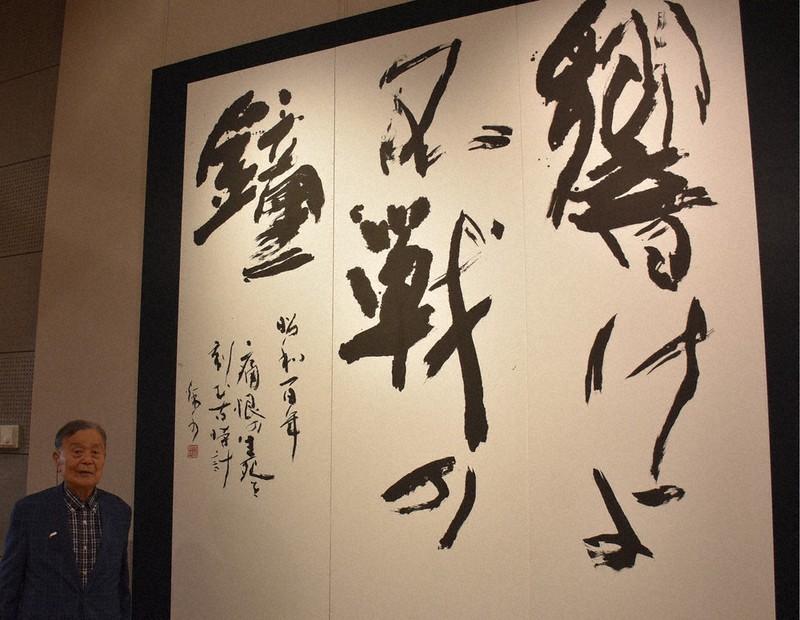 響けよ
不戦の
鐘
昭和百年
痛恨の生死を
刻む古時計